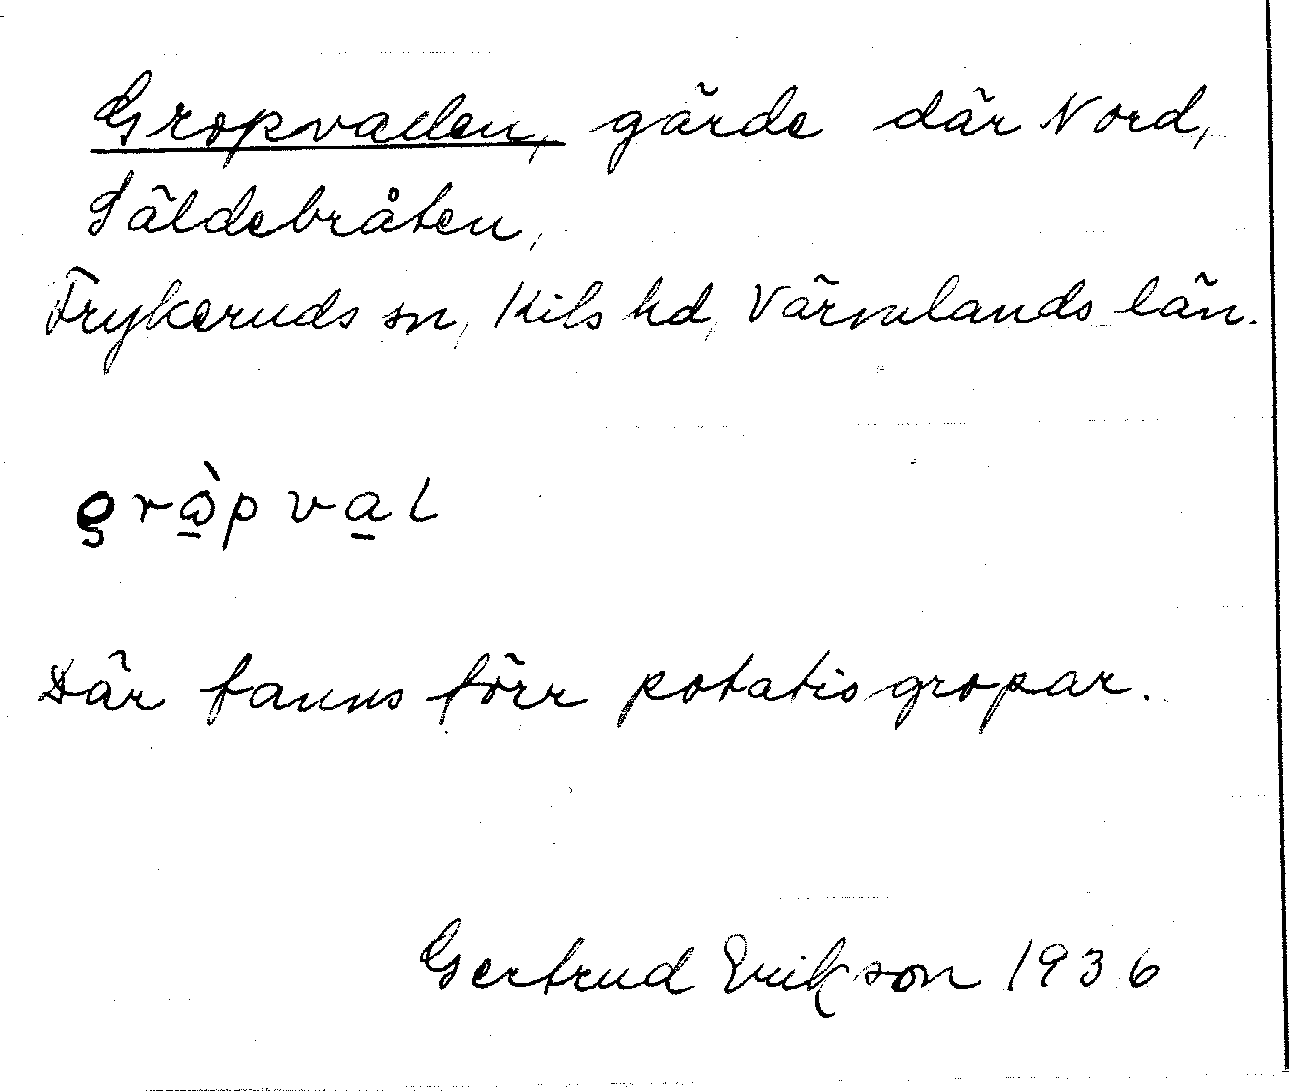 Gropvallen, gärde där Nord,
Säldebråten,
Frykeruds sn, Kils hd, Värmlands län.
Där fanns förr potatisgropar.
Gertrud Erikson 1936